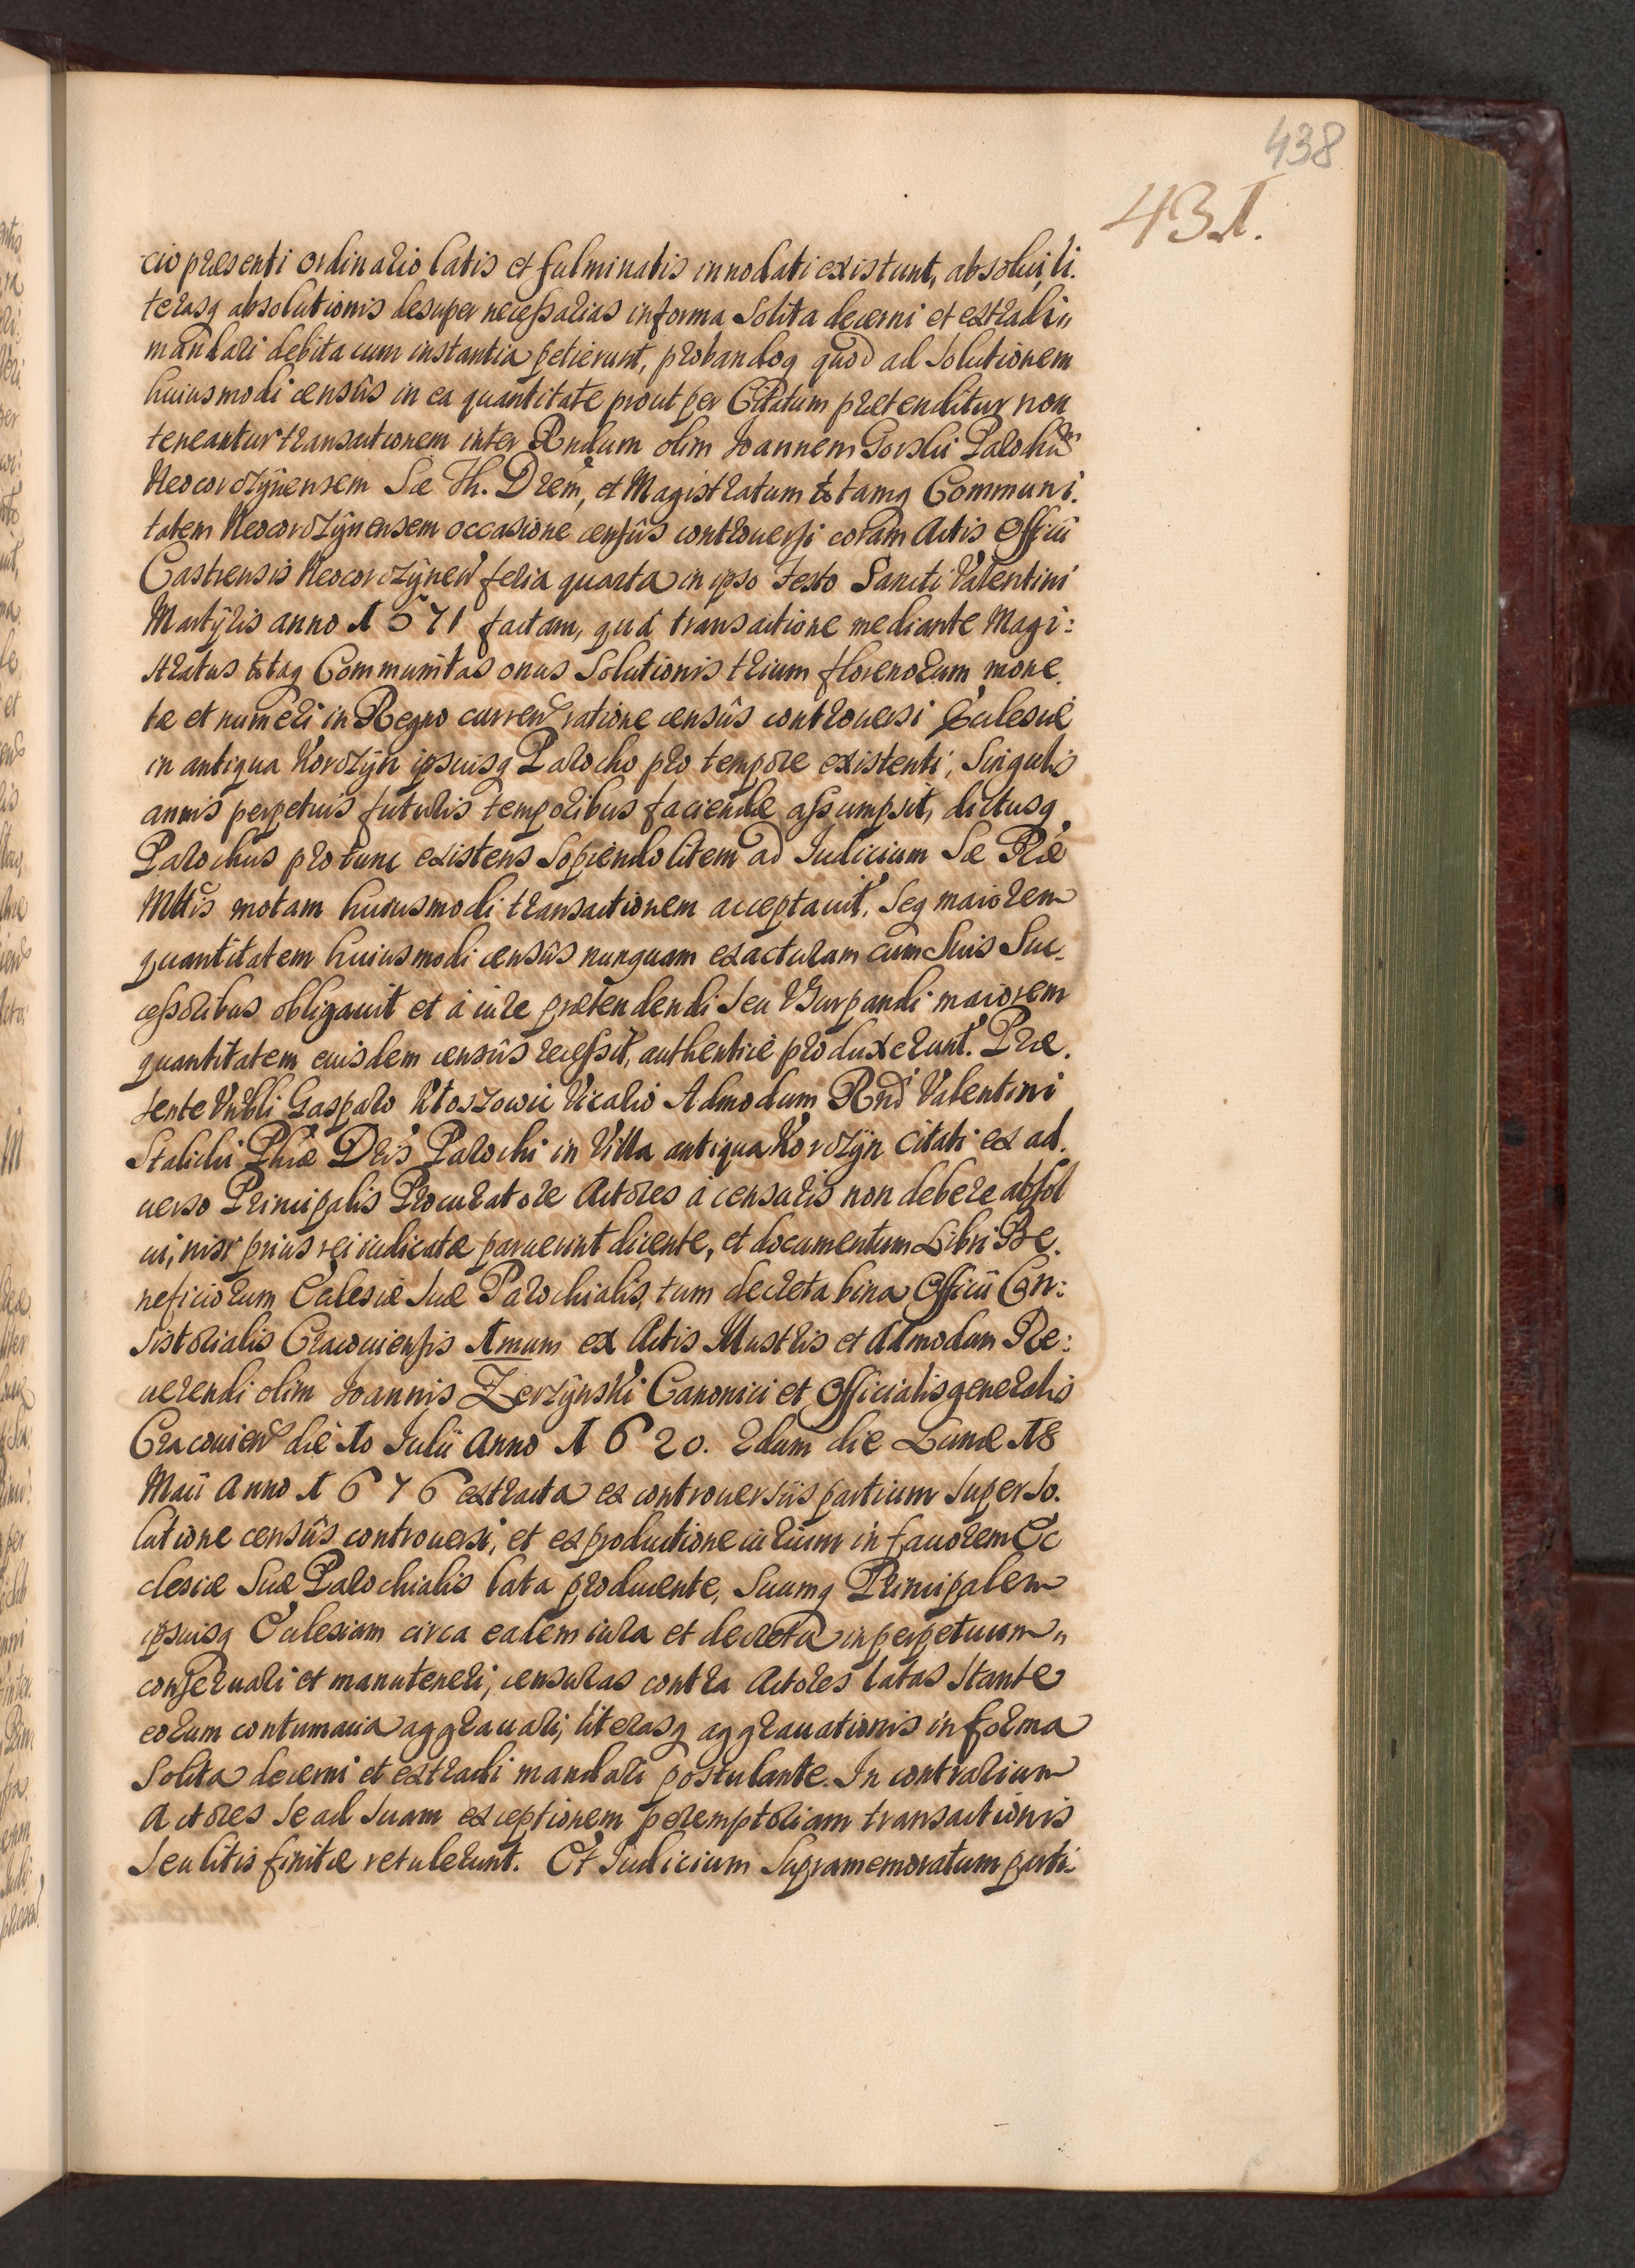 438
431.
cio præsenti ordinario latis et fulminatis innodati existunt, absolui, li.
terasq absolutionis desuper necessarias in forma solita decerni et extradi
mandari debita cum instantia petierunt, probandoq quod ad solutionem
huiusmodi censûs in ea quantitate prout per Citatum prætenditur non
teneantur transactionem inter Rndum olim Joannem Gorskii Parochũ
Neocorozynensem S. Th. Drem, et Magistratum totamq Communi.
tatem Neocorozynensem occasione censûs controuersi coram Actis Officii
Castrensis Neocorozynen feria quarta in ipso Festo Sancti Valentini
Martyris anno 1671 factam, quâ transactione mediante Magi:
stratus totaq Communitas onus solutionis trium florenorum mone.
tæ et numeri in Regno curren ratione censûs controuersi Ecclesiæ
in antiqua Korozyn ipsiusq Parocho pro tempore existenti, singulis
annis perpetuis futuris temporibus faciendæ assumpsit, dictusq
Parochus protunc existens sopiendo litem ad Iudicium Sæ Ræ
Mttis motam huiusmodi transactionem acceptauit, seq maiorem
quantitatem huiusmodi censûs nunquam exacturam cum suis suc.
cessoribus obligauit et à iure prætendendi seu Vsurpandi maiorem
quantitatem eiusdem censûs recessit, authenticè produxerunt. Præ.
sente Vnbli Gasparo Ktoszowic Vicario Admodum Rndi Valentini
Stalichi Phiæ Dris Parochi in Villa antiqua Korozyn citati ex ad.
uerso Principalis Procuratore Actores à censuris non debere absol
ui, nisi prius rei iudicatæ paruerint dicente, et documentum Libri Be.
neficiorum Ecclesiæ suæ Parochialis, tum decreta bina Officii Con:
sistorialis Cracouiensis 1mum ex Actis Illustris et Admodum Re:
uerendi olim Joannis Zerzynski Canonici et Officialis generalis
Cracouien die 10 Iulii Anno 1620. 2dum die Lunæ 18
Maii Anno 1676 extracta ex controuersiis partium super so.
lutione censûs controuersi, et ex productione iurium in fauorem Ec
clesiæ suæ Parochialis lata producente, suumq Principalem
ipsiusq Ecclesiam circa eadem iura et decreta in perpetuum
conseruari et manuteneri, censuras contra Actores latas stante
eorum contumacia aggrauari, literasq aggrauationis in forma
solita decerni et extradi mandari postulante. In contrarium
Actores se ad suam exceptionem peremptoriam transactionis
seu litis finitæ retulerunt. Et Iudicium supramemoratum parti: